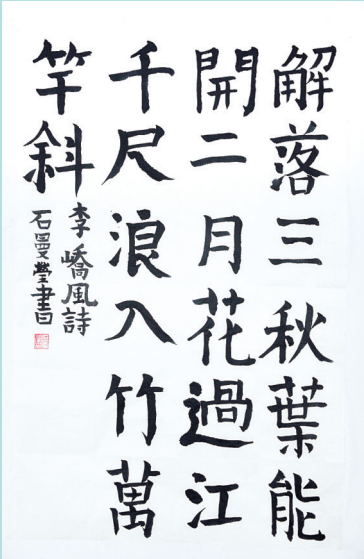 解落三秋葉能
開二月花過江
千尺浪入竹萬
竿斜
李嶠風詩
石曼瑩書